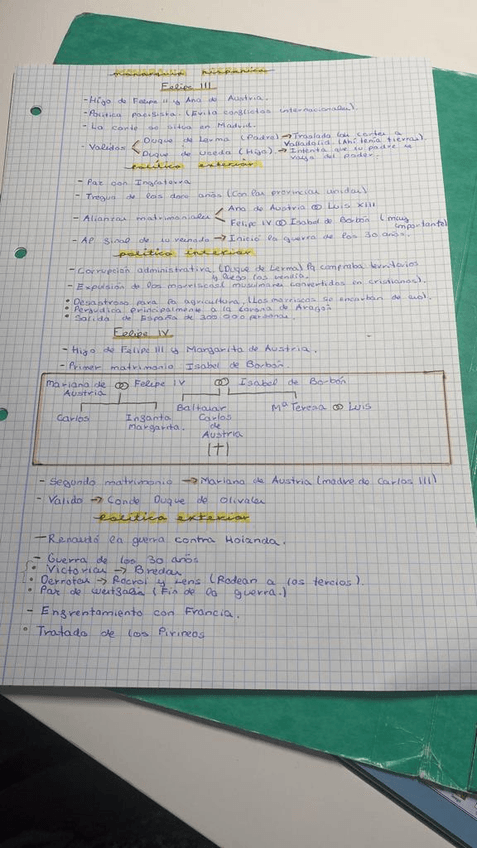 monarquia hispanica
Felipe III
- Hijo de Felipe II y Ana de Austria.
- Politica pacifista (Evita conflictos internacionales).
- La corte se situa en Madrid.
- Validos
Duque de Lerma (Padre) → Traslada las cortes a Valladolid (Ahi tenia tierras).
Duque de Uceda (Hijo) → Intenta que su padre se valga del poder.
politica exterior
- Paz con Inglaterra
- Tregua de los doce años (Con las provincias unidas)
- Alianzas matrimoniales
Ana de Austria ⚭ Luis XIII
Felipe IV ⚭ Isabel de Borbón (muy importante)
- Al final de su reinado → Inició la guerra de los 30 años.
politica interior
- Corrupción administrativa (Duque de Lerma) compraba territorios
y luego los vendia.
- Expulsión de los moriscos (musulmanes convertidos en cristianos).
• Desastroso para la agricultura (Los moriscos se encarban de eso).
• Perjudica principalmente a la corona de Aragón
• Salida de España de 300.000 personas.
Felipe IV
- Hijo de Felipe III y Margarita de Austria.
- Primer matrimonio Isabel de Borbón.
Mariana de Austria ⚭ Felipe IV ⚭ Isabel de Borbón
Carlos Infanta Margarita. Baltasar Carlos de Austria (†) Mª Teresa ⚭ Luis
- Segundo matrimonio → Mariana de Austria (madre de Carlos III)
- Valido → Conde Duque de Olivales
politica exterior
- Reanudó la guerra contra Holanda.
- Guerra de los 30 años
• Victorias → Bredas
• Derrotas → Rocroi y Lens (Rodean a los tercios).
• Paz de westfalia (Fin de la guerra.)
- Enfrentamiento con Francia.
• Tratado de los Pirineos